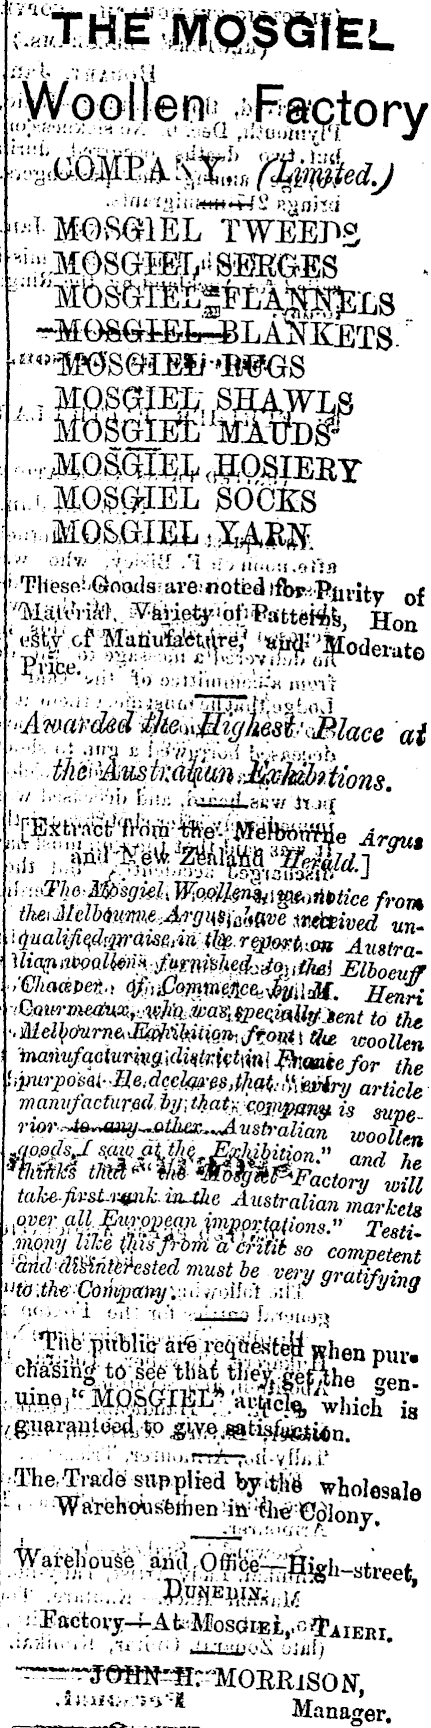 THE MOSGIEL
Woollen Factory
COMPANY, (Limited.)
MOSGIEL TWEEDS
MOSGIEL SERGES
MOSGIEL FLANNELS
MOSGIEL BLANKETS
MOSGIEL RUGS
MOSGIEL SHAWLS
MOSGIEL MAUDS
MOSGIEL HOSIERY
MOSGIEL SOCKS
MOSGIEL YARN
These Goods are noted for Purity of
Material, Variety of Patterns, Hon
esty of Manufacture, and Moderate
Price.
Awarded the Highest Place at
the Australian Exhibitions.
[Extract from the Melbourne Argus
and New Zealand Herald.]
The Mosgiel Woollens, we notice from
the Melbourne Argus, have received un-
qualified praise in the report on Austra-
lian woollens furnished to the Elboeuff
Chamber of Commerce by M. Henri
Courmeaux, who was specially sent to the
Melbourne Exhibition from the woollen
manufacturing district in France for the
purpose. He declares that "every article
manufactured by that company is supe-
rior to any other Australian woollen
goods I saw at the Exhibition." and he
thinks that "the Mosgiel Factory will
take first rank in the Australian markets
over all European importations." Testi-
mony like this from a critic so competent
and disinterested must be very gratifying
to the Company.
The public are requested when pur-
chasing to see that they get the gen-
uine "MOSGIEL" article, which is
guaranteed to give satisfaction.
The Trade supplied by the wholesale
Warehousemen in the Colony.
Warehouse and Office—High-street,
DUNEDIN.
Factory—At MOSGIEL, TAIERI.
JOHN H. MORRISON,
Manager.